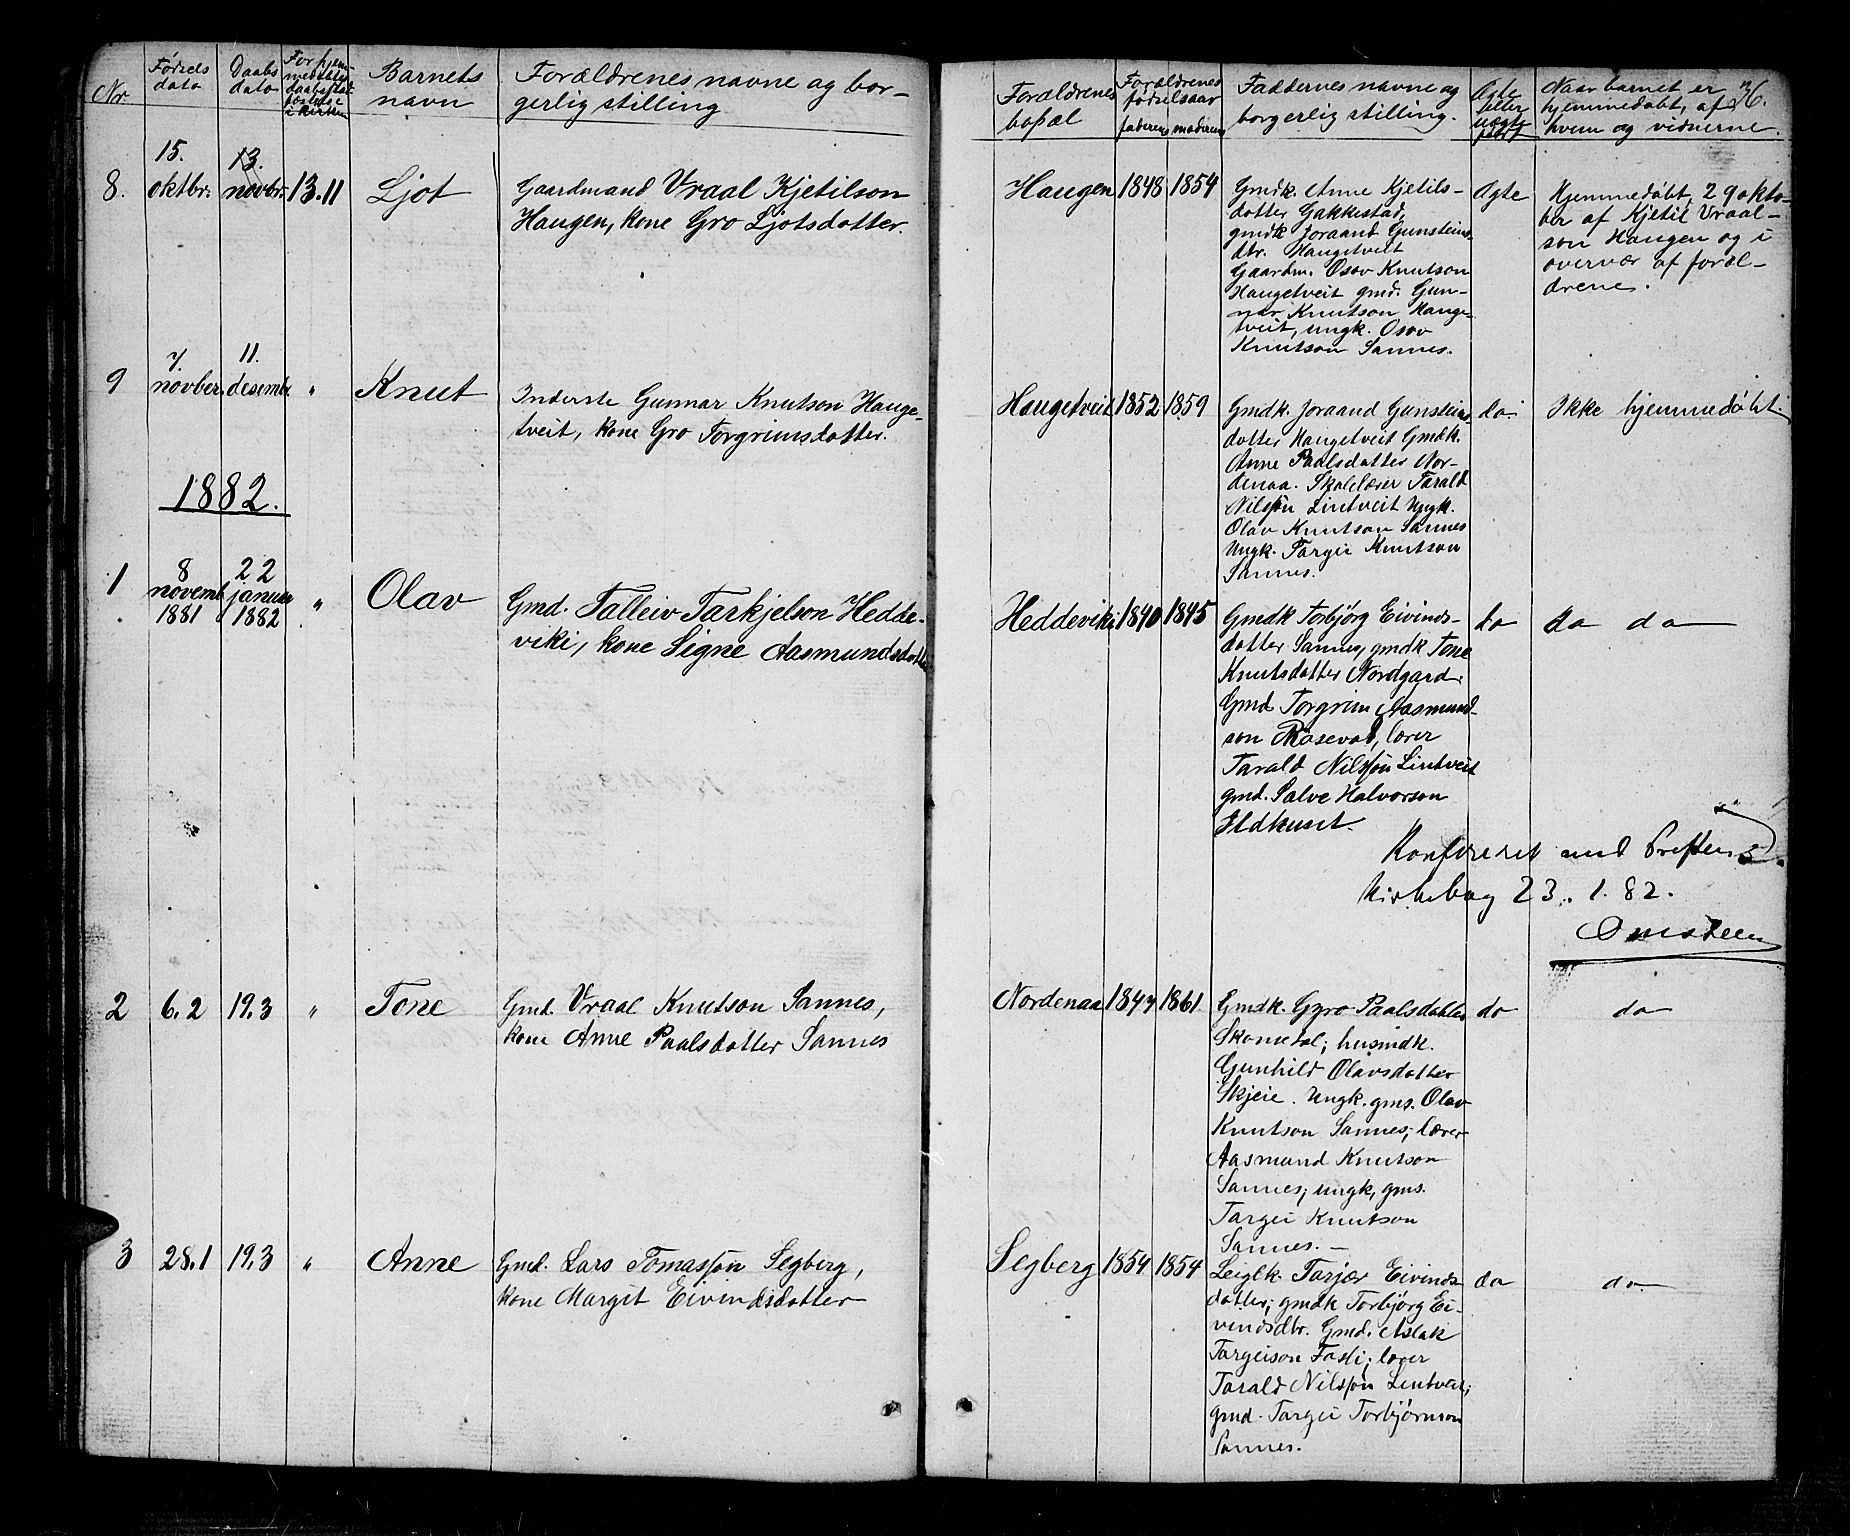 Nr
Fødsels
dato
Daabs
dato
For hjem-
medøbte
daabs stad-
fæstelse
i kirken
Barnets
navn
Forældrenes navne og bor-
gerlig stilling
Forældrenes
bopæl
Forældrenes
fødselsaar
faderens moderens
Faddernes navne og
borgerlig stilling.
Ægte
eller
uægte
født
Naar barnet er
hjemmedøbt, af
hvem og vidnerne.
76.
8.
15.
oktbr.
13.
novbr.
13.11
Ljot
Gaardmand Vraal Kjetilson
Haugen, kone Gro Ljotsdotter.
Haugen
1848
1854
Gmdk. Anne Kjetils-
dotter Gakkestad,
gmdk Joraand Gunsteins-
dtr. Haugetveit
Gaardm. Osov Knutson
Haugetveit gmd. Gun-
nar Knutson Hauge-
tveit, ungk. Osov
Knutson Sannes.
Ægte
Hjemmedøbt, 29 okto-
ber af Kjetil Vraal-
son Haugen og i
overvær af foræl-
drene.
9
7.
novber.
11.
desembr.
"
Knut
Inderste Gunnar Knutson Hauge-
tveit, kone Gro Torgrimsdotter.
Haugetveit
1852
1859
Gmdk. Joraand Gunsteins-
dotter Haugetveit Gmdk.
Anne Paalsdotter Nor-
denaa. Skolelærer Tarald
Nilssøn Lintveit Ungk.
Olav Knutson Sannes
Ungk. Targei Knutson
Sannes.
do.
Ikke hjemmedøbt.
1882.
1
8
novemb.
1881
22
januar
1882
"
Olav
Gmd. Talleiv Tarkjelson Hedde-
viki, kone Signe Aasmundsdotter
Heddeviki
1840
1845
Gmdk Torbjørg Eivinds-
dotter Sannes, gmdk Tone
Knutsdotter Nordgard.
Gmd Torgrim Aasmund-
son Rosevol, lærer
Tarald Nilssøn Lintveit
gmd. Salve Halvorson
Ildhuset.
do
do do
Konfereret med Prestens
Kirkebog 23.1.82.
Omsteen
2
6.2
19.3
"
Tone
Gmd. Vraal Knutson Sannes,
kone Anne Paalsdotter Sannes
Nordenaa
1847
1861
Gmdk. Gyro Paalsdotter
Skomedal; husmdk.
Gunhild Olavsdotter
Skjeie. Ungk. gms. Olav
Knutson Sannes; lærer
Aasmund Knutson
Sannes; ungk, gms.
Targei Knutson
Sannes. —
do
do
3
28.1
19.3
"
Anne
Gmd. Lars Tomassøn Segberg,
kone Margit Eivindsdotter
Segberg
1854
1854
Leiglk. Tarjer Eivinds-
dotter; gmdk Torbjørg Ei-
vindsdtr. Gmd. Aslak
Targeison Fosli; lærer
Tarald Nilssøn Lintveit;
gmd. Targei Torbjørnson
Sannes.
do
do.